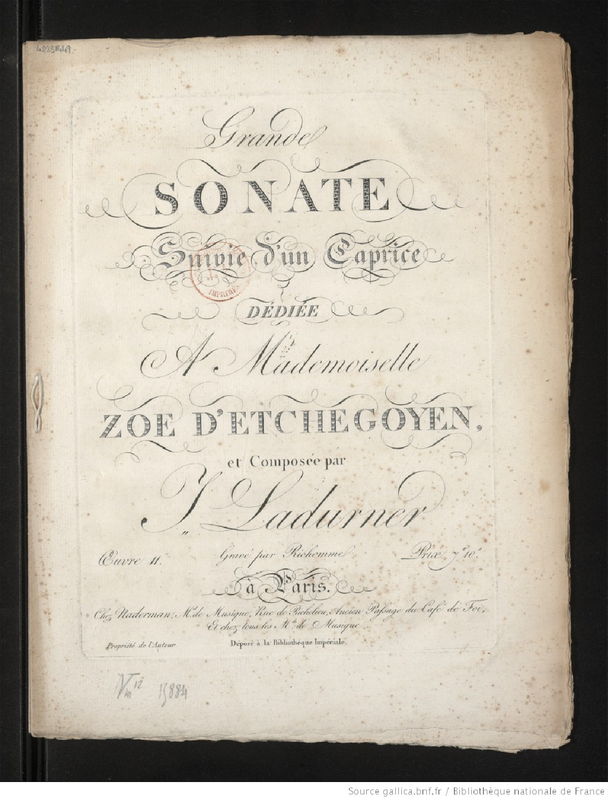 Grande
SONATE
Suivie d'un Caprice
DÉDIÉE
A Mademoiselle
ZOE D'ETCHEGOYEN,
et Composée par
J. Ladurner
Œuvre 11.
Gravé par Richomme
Prix 7f 10s
à Paris.
Chez Naderman, Md de Musique, Rue de Richelieu, Ancien Passage du Café de Foi,
Et chez tous les Mds de Musique
Propriété de l'Auteur
Déposé à la Bibliothèque Impériale.
Vm 12 15884
Source gallica.bnf.fr / Bibliothèque nationale de France